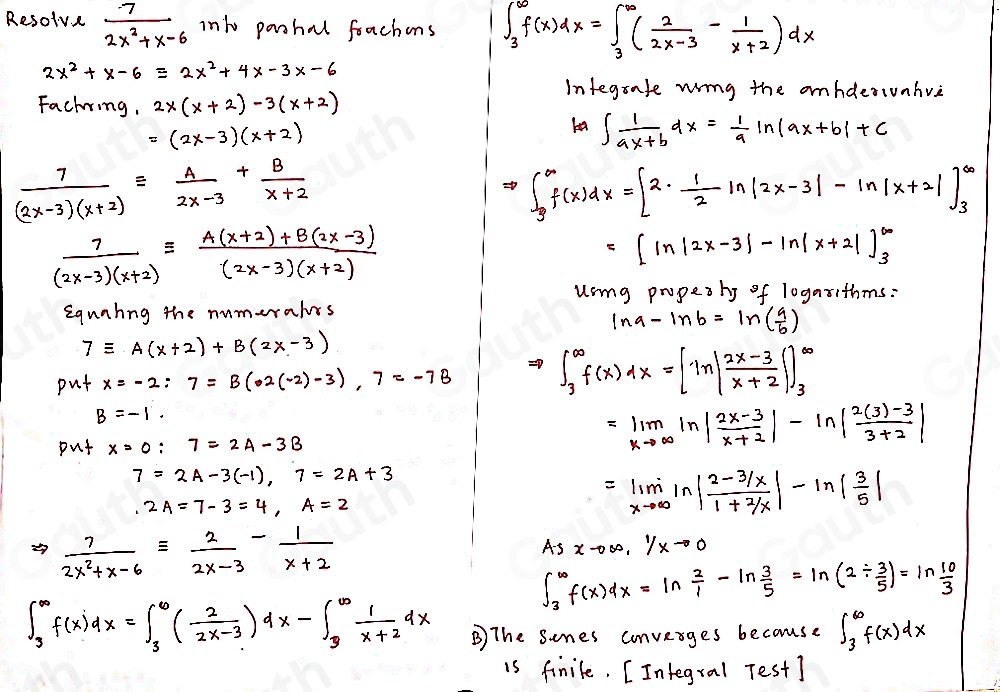 Resolve 7/(2x²+x-6) into partial fractions
2x² + x - 6 ≡ 2x² + 4x - 3x - 6
Factoring, 2x(x+2) - 3(x+2)
= (2x-3)(x+2)
7/((2x-3)(x+2)) ≡ A/(2x-3) + B/(x+2)
7/((2x-3)(x+2)) ≡ (A(x+2) + B(2x-3))/((2x-3)(x+2))
Equating the numerators
7 ≡ A(x+2) + B(2x-3)
put x = -2: 7 = B(2(-2)-3), 7 = -7B
B = -1.
put x = 0: 7 = 2A - 3B
7 = 2A - 3(-1), 7 = 2A + 3
2A = 7 - 3 = 4, A = 2
⇒ 7/(2x²+x-6) ≡ 2/(2x-3) - 1/(x+2)
∫₃^∞ f(x)dx = ∫₃^∞ (2/(2x-3)) dx - ∫₃^∞ 1/(x+2) dx
∫₃^∞ f(x)dx = ∫₃^∞ (2/(2x-3) - 1/(x+2)) dx
Integrate using the antiderivative
∫ 1/(ax+b) dx = 1/a ln|ax+b| + C
⇒ ∫₃^∞ f(x)dx = [2 · 1/2 ln|2x-3| - ln|x+2|]₃^∞
= [ln|2x-3| - ln|x+2|]₃^∞
Using property of logarithms:
ln a - ln b = ln(a/b)
⇒ ∫₃^∞ f(x)dx = [ln|(2x-3)/(x+2)|]₃^∞
= lim x→∞ ln|(2x-3)/(x+2)| - ln|(2(3)-3)/(3+2)|
= lim x→∞ ln|(2-3/x)/(1+2/x)| - ln|3/5|
As x→∞, 1/x→0
∫₃^∞ f(x)dx = ln 2/1 - ln 3/5 = ln(2 ÷ 3/5) = ln 10/3
B) The series converges because ∫₃^∞ f(x)dx
is finite. [Integral Test]